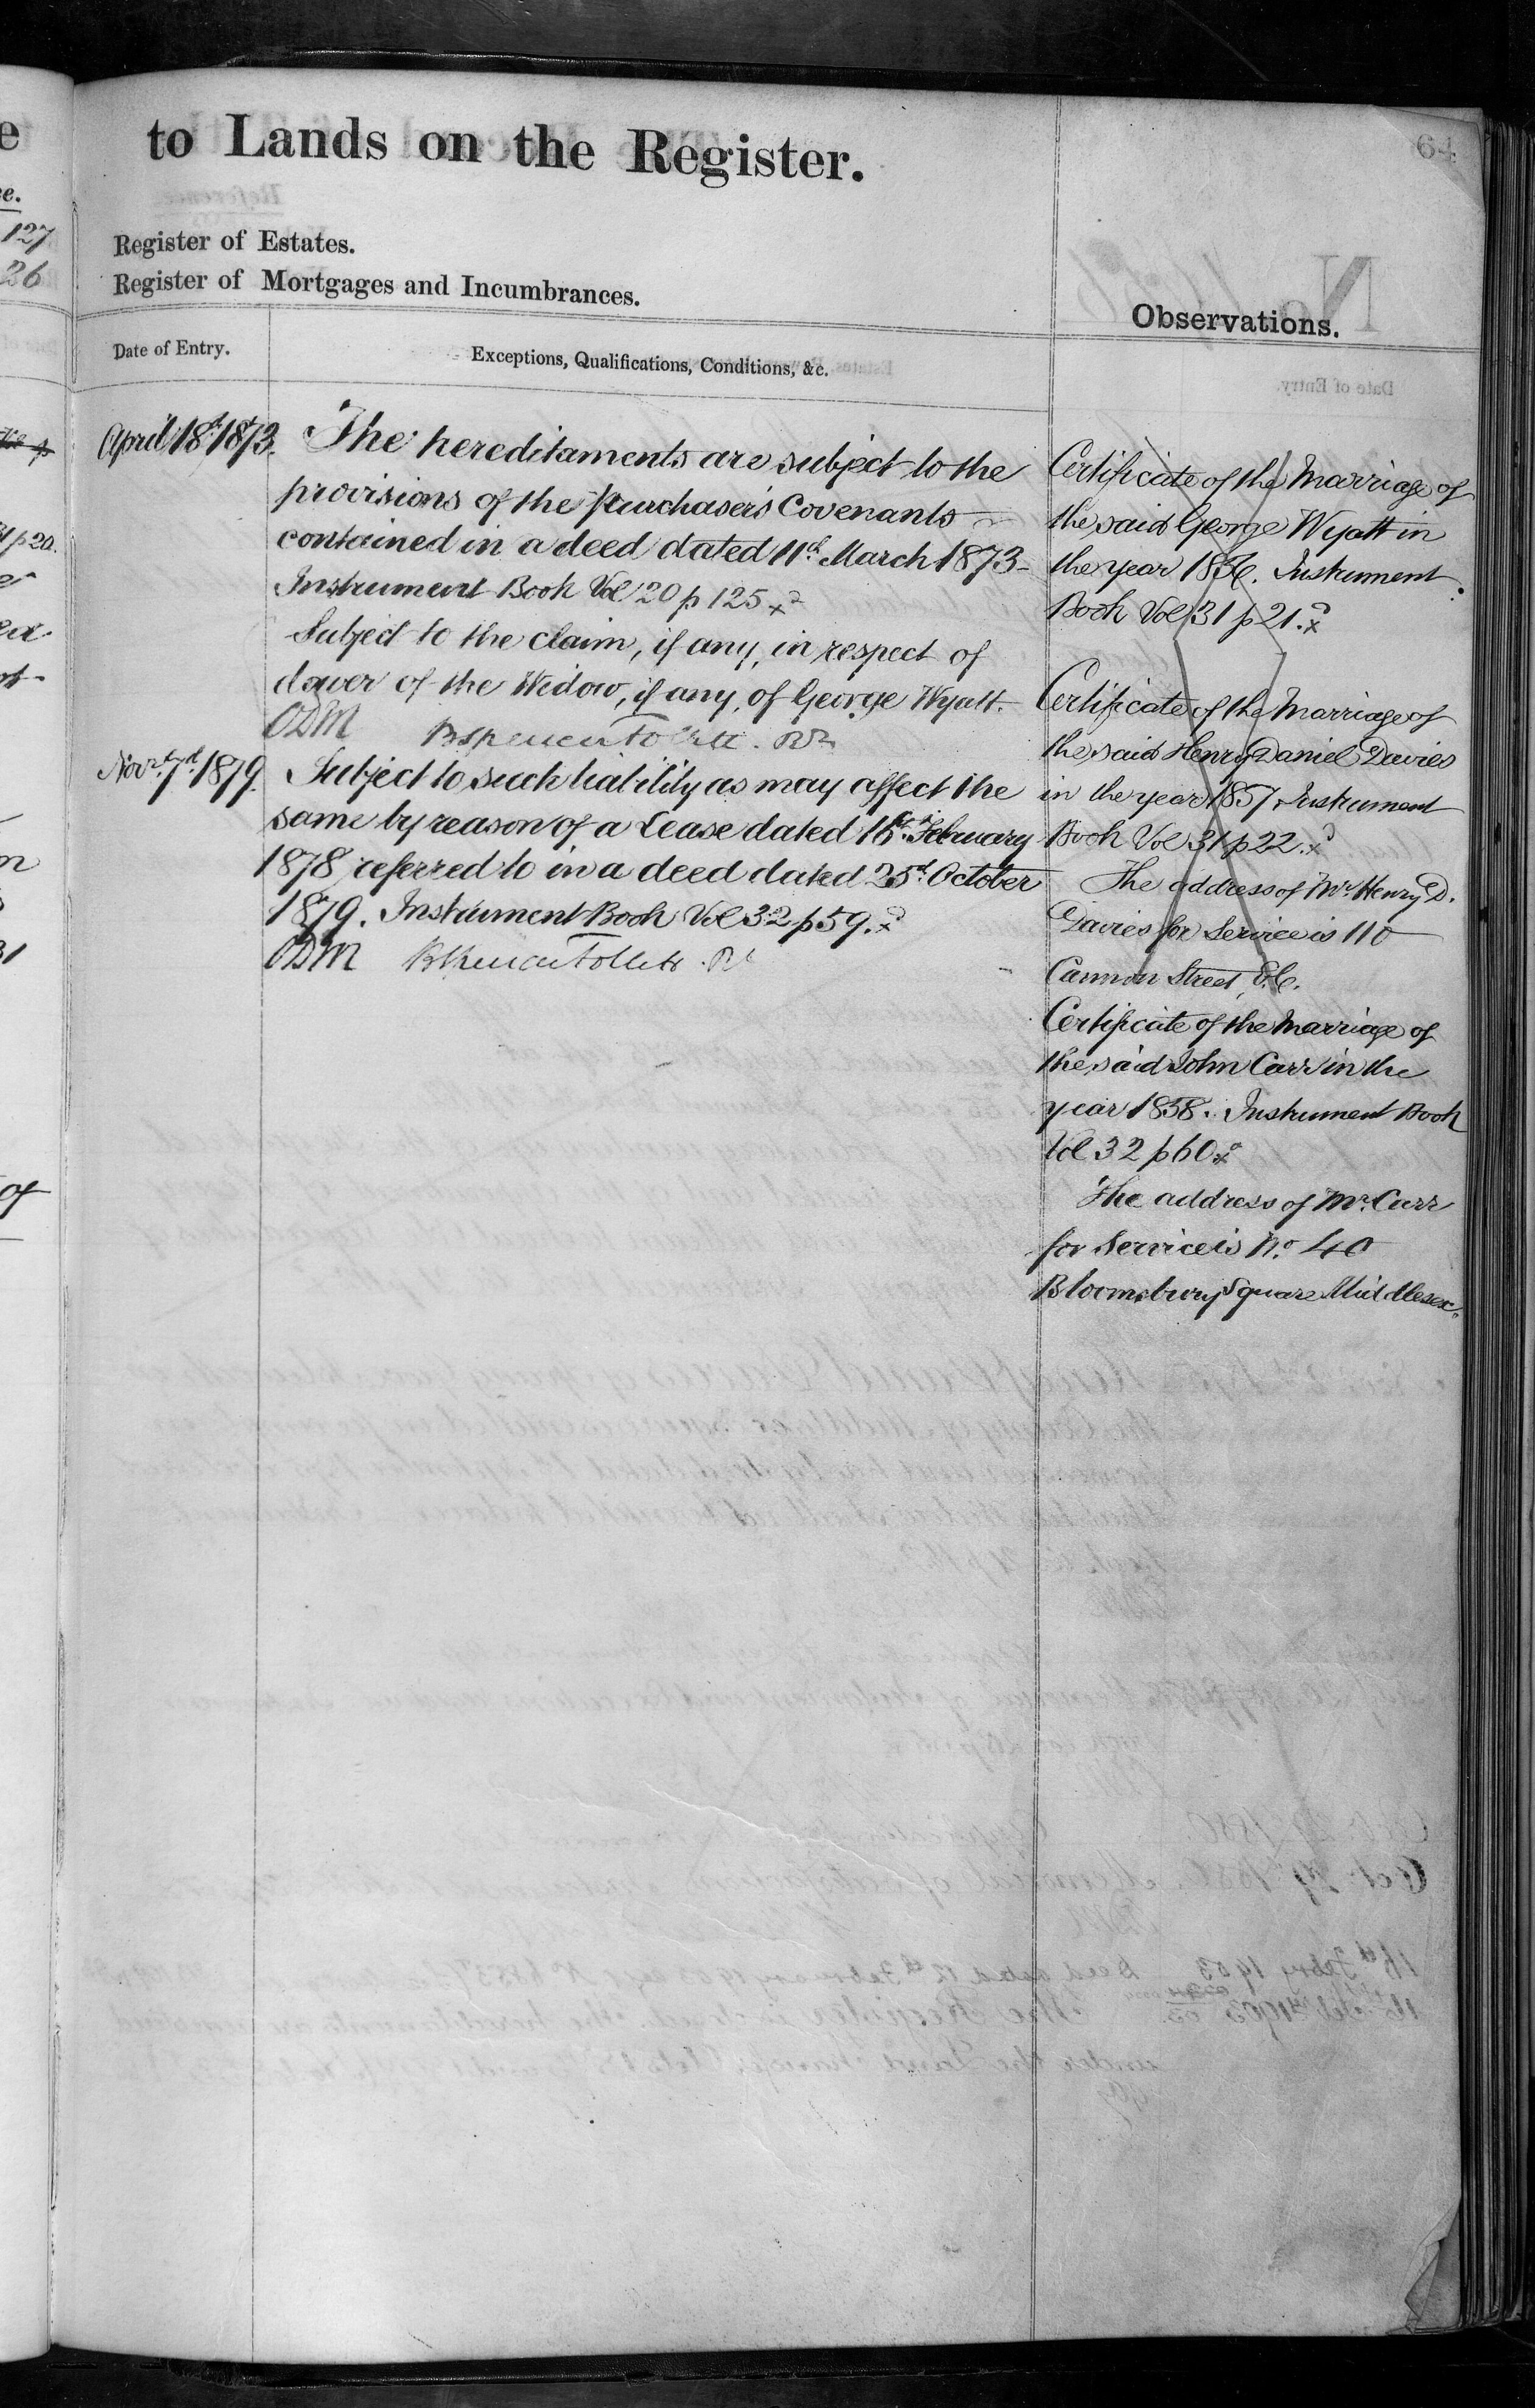 to Lands on the Register.
64
Register of Estates.
Register of Mortgages and Incumbrances.
Date of Entry.
Exceptions, Qualifications, Conditions, &c.
Observations.
April 18th 1873.
The hereditaments are subject to the
provisions of the purchaser's Covenants
contained in a deed dated 11th March 1873
Instrument Book Vol 20 p 125
Subject to the claim, if any, in respect of
dower of the Widow, if any, of George Wyatt.
ODM
Novr. 7th 1879.
Subject to such liability as may affect the
same by reason of a Lease dated February
1878 referred to in a deed dated 25th October
1879. Instrument Book Vol 32 p 59.
ODM
Certificate of the Marriage of
the said George Wyatt in
the year 1836. Instrument
Book Vol 31 p 21.
Certificate of the Marriage of
the said Henry Daniel Davies
in the year 1857 Instrument
Book Vol 31 p 22.
The address of Mr. Henry D.
Davies for Service is 110
Cannon Street, E.C.
Certificate of the Marriage of
the said John Carr in the
year 1858. Instrument Book
Vol 32 p 60
The address of Mr. Carr
for Service is No. 40
Bloomsbury Square Middlesex.
127
26
p 20.
of